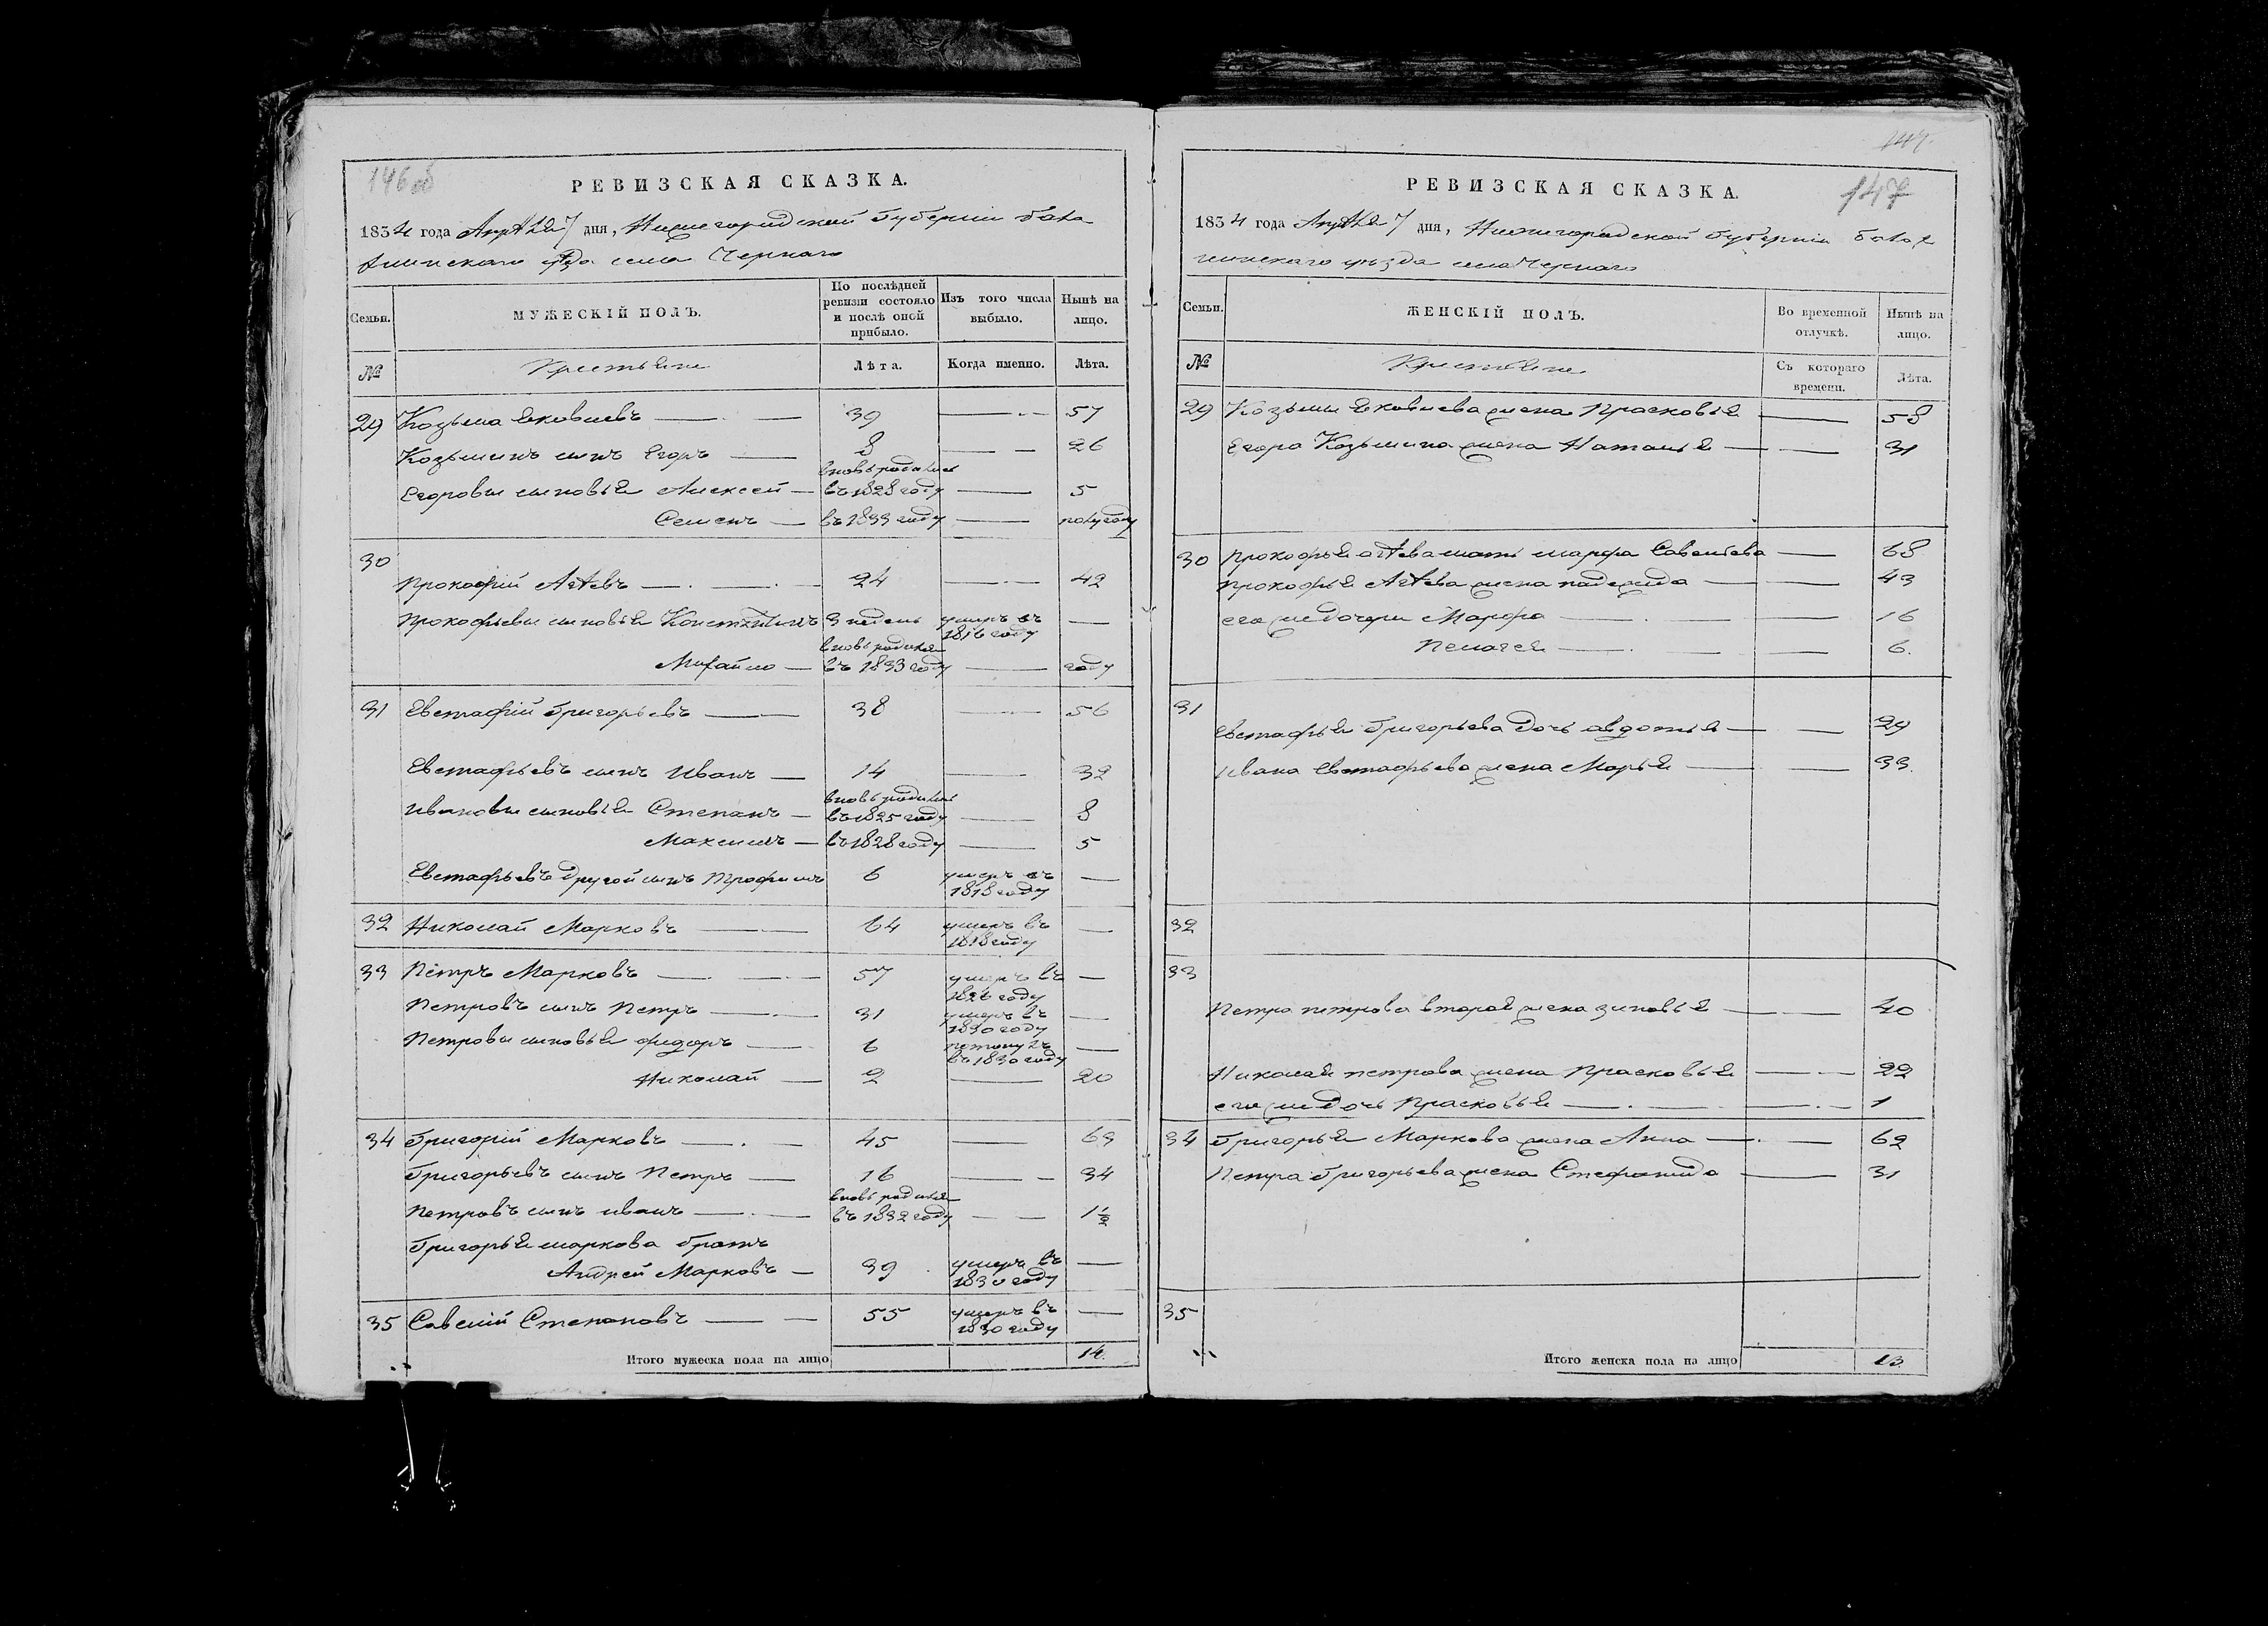 146 об
РЕВИЗСКАЯ СКАЗКА.
1834 года Апрѣля 7 дня, Нижегородской губерніи бала-
хнинскаго уѣзда села Чернаго
Семьи. МУЖЕСКІЙ ПОЛЪ. По послѣдней ревизіи состояло и послѣ оной прибыло. Изъ того числа выбыло. Нынѣ на лицо.
№ Крестьяне Лѣта. Когда именно. Лѣта.
29 Козьма Яковлевъ — 39 — 57
Козьминъ сынъ Егоръ — 8 — 26
вновь родились
Егоровы сыновья Алексей — въ 1828 году — 5
Семенъ — въ 1833 году — полугоду
30
Прокофій Агѣевъ — 24 — 42
Прокофьевы сыновья Константинъ 3 недель умеръ въ 1816 году —
вновь родился
Михайло — въ 1833 году — году
31 Евстафій Григорьевъ — 38 — 56
Евстафьевъ сынъ Иванъ — 14 — 32
вновь родились
Ивановы сыновья Степанъ — въ 1825 году — 8
Максимъ — въ 1828 году — 5
Евстафьевъ другой сынъ Трофимъ 6 умеръ въ 1818 году —
32 Николай Марковъ — 64 умеръ въ 1818 году —
33 Петръ Марковъ — 57 умеръ въ 1826 году —
Петровъ сынъ Петръ — 31 умеръ въ 1830 году —
Петровы сыновья Федоръ — 6 въ 1830 году —
Николай — 2 — 20
34 Григорій Марковъ — 45 — 63
Григорьевъ сынъ Петръ — 16 — 34
вновь родился
Петровъ сынъ Иванъ — въ 1832 году — 1½
Григорья Маркова братъ
Андрей Марковъ — 39 умеръ въ 1830 году —
35 Савелій Степановъ — 55 умеръ въ 1830 году —
Итого мужеска пола на лицо 14.
147
РЕВИЗСКАЯ СКАЗКА.
1834 года Апрѣля 7 дня, Нижегородской губерніи балах
нинскаго уѣзда села Чернаго
Семьи. ЖЕНСКІЙ ПОЛЪ. Во временной отлучкѣ. Нынѣ на лицо.
№ Крестьяне Съ котораго времени. Лѣта.
29 Козьмы Яковлева жена Прасковья — 58
Егора Козьмина жена Наталья — 31
30 Прокофья Агѣева мать Марфа Савельева — 68
Прокофья Агѣева жена Надежда — 43
его же дочери Марфа — 16
Пелагея — 6.
31
Евстафья Григорьева дочь Авдотья — 29
Ивана Евстафьева жена Марья — 33.
32
33
Петра Петрова вторая жена Зиновья — 40
Николая Петрова жена Прасковья — 22
его же дочь Прасковья — 1
34 Григорья Маркова жена Анна — 62
Петра Григорьева жена Стефанида — 31
35
Итого женска пола на лицо 13.